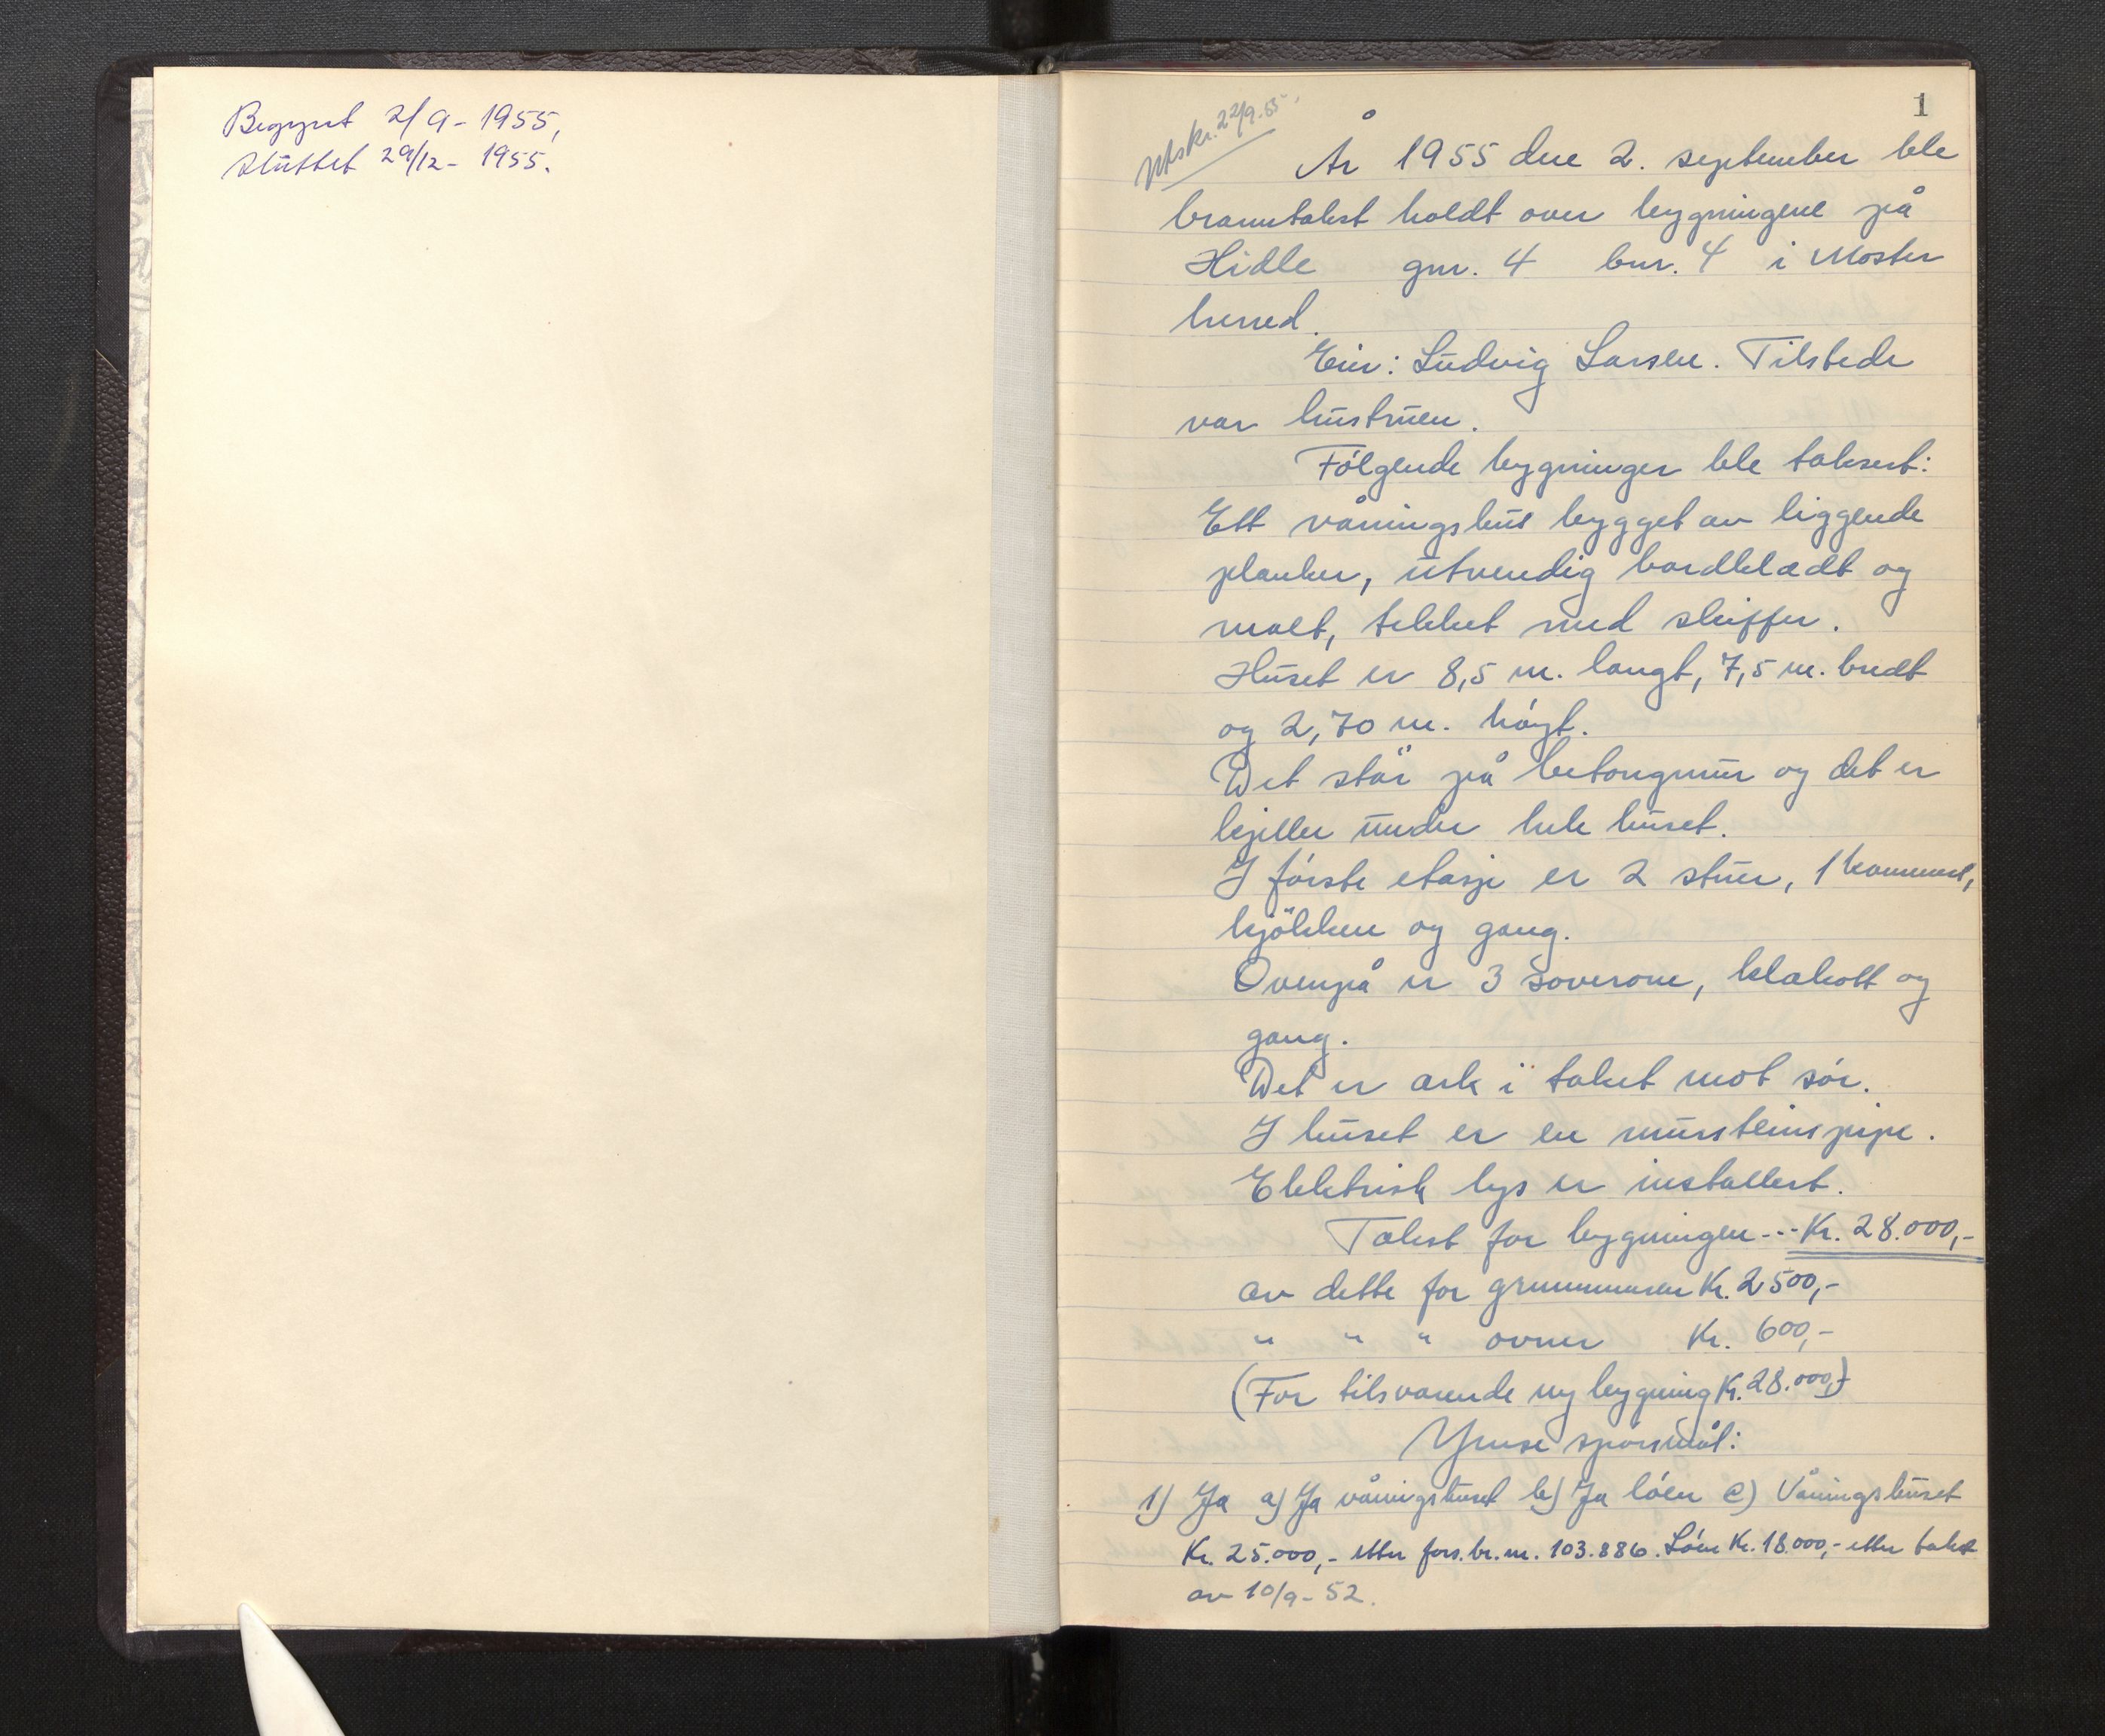 Begynt 2/9 - 1955,
sluttet 29/12 - 1955.
1
Utskr. 22/9-55
År 1955 den 2. september ble
branntakst holdt over bygningene på
Hidle gnr. 4 bnr. 4 i Moster
herred.
Eier: Ludvig Larsen. Tilstede
var hustruen.
Følgende bygninger ble taksert:
Ett våningshus bygget av liggende
planker, utvendig bordkledt og
malt, tekket med skiffer.
Huset er 8,5 m. langt, 7,5 m. bredt
og 2,70 m. høgt.
Det står på betongmur og det er
kjeller under hele huset.
I første etasje er 2 stuer, 1 kammers,
kjøkken og gang.
Ovenpå er 3 soverom, klekott og
gang.
Det er ark i taket mot sør.
I huset er en mursteinspipe.
Elektrisk lys er installert.
Takst for bygningen --- Kr. 28.000,-
av dette for grunnmuren Kr. 2500,-
" " " ovner Kr. 600,-
(For tilsvarende ny bygning Kr. 28.000,-)
Ymse spørsmål:
1) Ja a) Ja våningshuset b) Ja løen c) Våningshuset
Kr. 25.000,- etter fors.br.nr. 103.886. Løen Kr. 18.000,- etter takst
av 10/9 - 52.